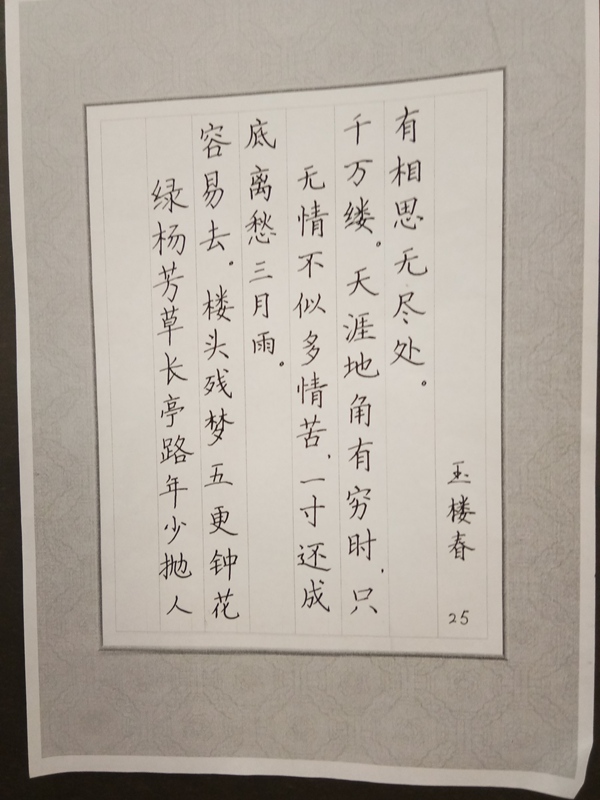 绿杨芳草长亭路年少抛人
容易去。楼头残梦五更钟花
底离愁三月雨。
无情不似多情苦，一寸还成
千万缕。天涯地角有穷时，只
有相思无尽处。
玉楼春
25